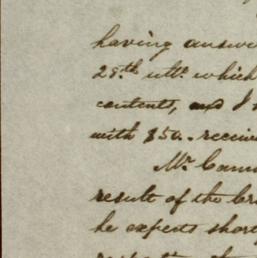 having answe
28th ulto. which
contents, and I
with $50. receiv
Mr. Cam
result of the
he expects short